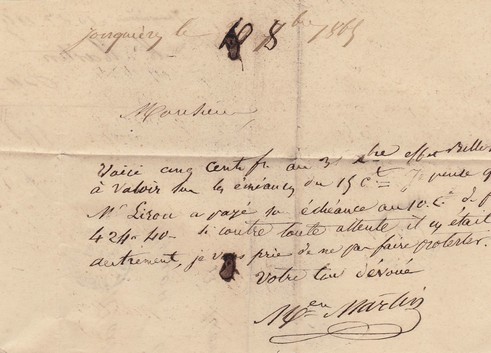 Jonquières le 18 8bre 1865
Monsieur
Voici cinq cents fr au 31 xbre effet Bille
à valoir sur les échéances du 15 ct Je pense q
Mr Liron a payé son échéance au 10 ct de f
424-40- Si contre toute attente il en était
autrement, je vous prie de ne pas faire protester.
Votre tout dévoué
Martin